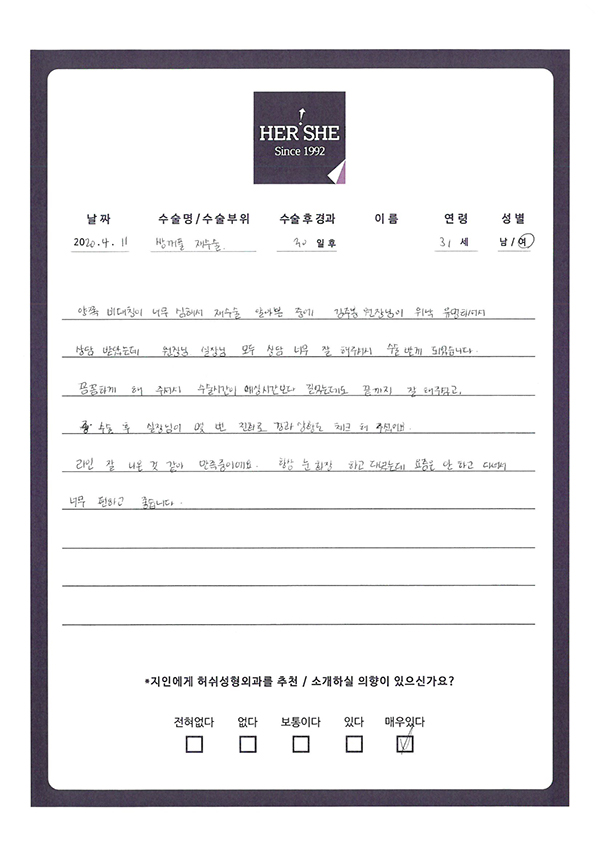 HER SHE
Since 1992
날 짜 수술명/수술부위 수술후경과 이 름 연 령 성 별
2020. 4. 11 쌍꺼풀 재수술. 30 일 후 31 세 남/여
양쪽 비대칭이 너무 심해서 재수술 알아본 중에 원장님이 워낙 유명하셔서
상담 받았는데 원장님 실장님 모두 상담 너무 잘 해주셔서 수술 받게 되었습니다.
꼼꼼하게 해 주셔서 수술시간이 예상시간보다 길었는데도 끝까지 잘 해주셨고,
수술 후 실장님이 몇 번 전화로 경과 상황도 체크 해 주셨어요.
라인 잘 나온 것 같아 만족중이에요. 항상 눈 화장 하고 다녔는데 요즘은 안 하고 다녀서
너무 편하고 좋습니다.
*지인에게 허쉬성형외과를 추천 / 소개하실 의향이 있으신가요?
전혀없다 없다 보통이다 있다 매우있다